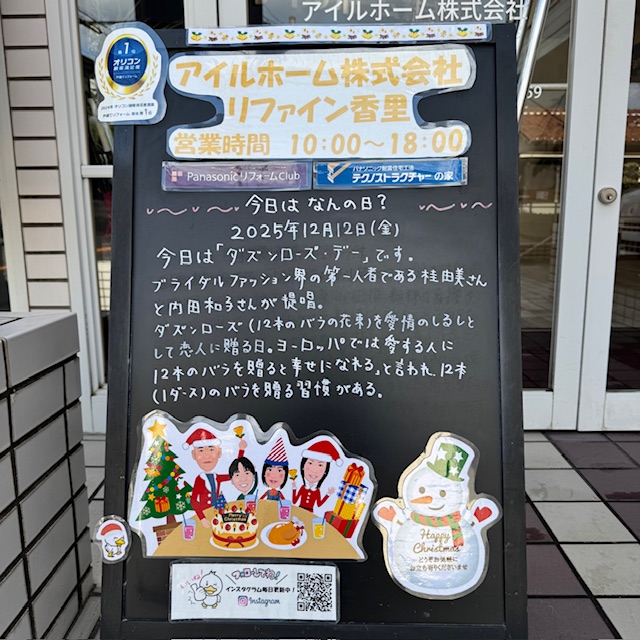 アイルホーム株式会社
第1位
オリコン
顧客満足度
アイルホーム株式会社
リファイン香里
営業時間 10:00～18:00
Panasonic リフォームClub
パナソニック耐震住宅工法
テクノストラクチャーの家
今日は なんの日？
2025年12月12日(金)
今日は「ダズンローズ・デー」です。
ブライダルファッション界の第一人者である桂由美さん
と内田和子さんが提唱。
ダズンローズ(12本のバラの花束)を愛情のしるしと
して恋人に贈る日。ヨーロッパでは愛する人に
12本のバラを贈ると幸せになれる。と言われ、12本
(1ダース)のバラを贈る習慣がある。
Merry
Christmas
Happy
Christmas
どうぞお気軽に
お立ち寄りくださいませ
フォローしてね！
インスタグラム毎日更新中！
Instagram